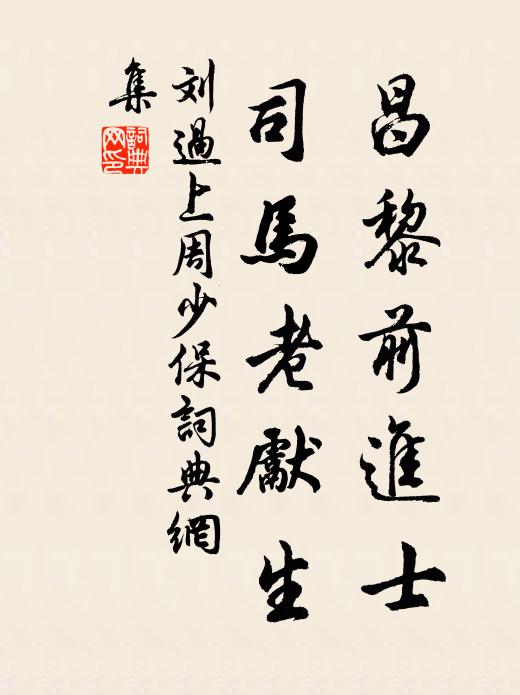 昌黎前進士
司馬老獻生
刘過上周少保詞典網
集
詞典網印